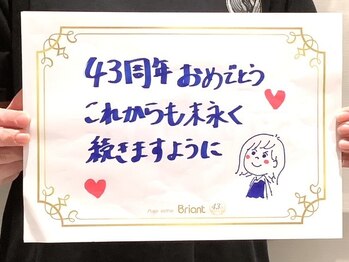 43周年おめでとう
これからも末永く
続きますように
Briant